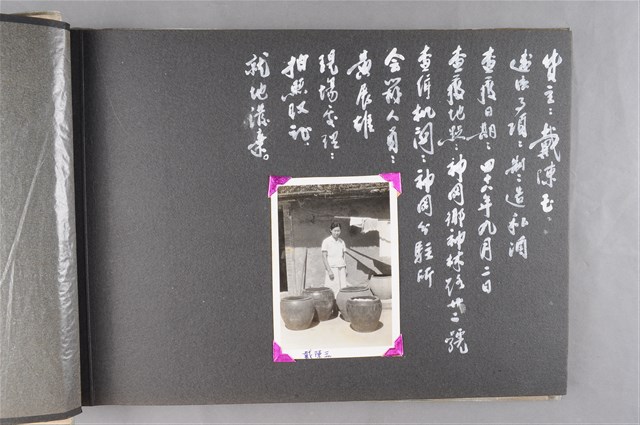 貨主：戴陳玉
違法事項：制造私酒
查獲日期：四十六年九月二日
查獲地點：神岡鄉神林路廿二號
查緝機關：神岡分駐所
人員：
黃展雄
現場處理：
拍照取證：
就地棄。
戴陳玉